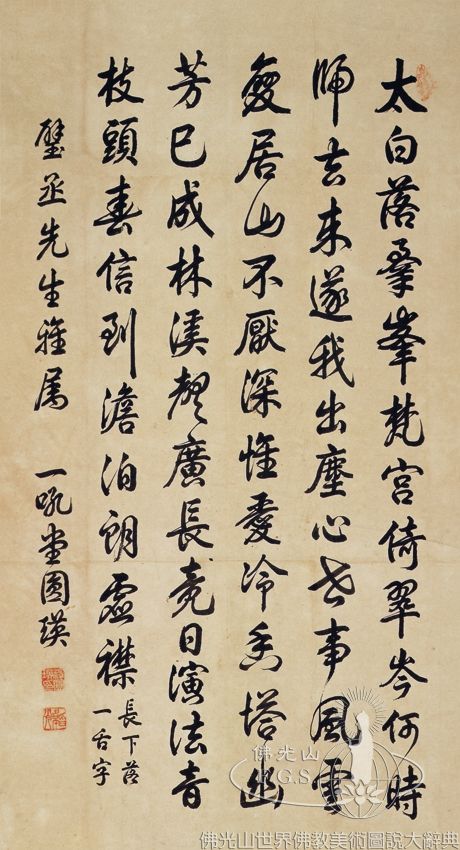 太白落羣峯梵宮倚翠岑何時
歸去来遂我出塵心世事風雲
變居山不厭深惟愛冷香塔幽
芳已成林溪聲廣長竟日演法音
枝頭春信到澹泊朗虛襟
長下落
一舌字
璧丞先生雅属 一吼堂圓瑛
佛光山
F.G.S.
佛光山世界佛教美術圖說大辭典